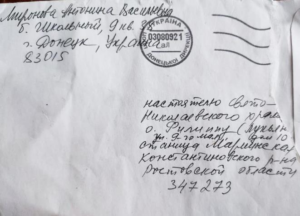 Миронова Антонина Васильевна
Б. Школьный, 9 кв.
г. Донецк, Украина
83015
УКРАЇНА
настоятелю Свято-
Николаевского храма
о. Филиппу
станица Мариинская
Константиновского р-на
Ростовской области
347273